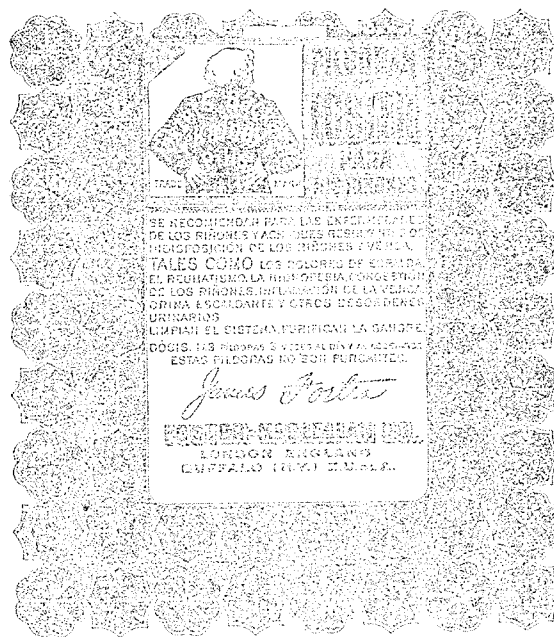 PILDORAS
PARA
LOS RIÑONES
TRADE MARK
SE RECOMIENDAN PARA LAS ENFERMEDADES
DE LOS RIÑONES Y ACHAQUES
INDISPOSICION DE LOS RIÑONES Y VEJIGA,
TALES COMO LOS DOLORES DE ESPALDA,
EL REUMATISMO, LA HIDROPESIA, CONGESTION
DE LOS RIÑONES, INFLAMACION DE LA VEJIGA,
ORINA ESCALDANTE Y OTROS DESORDENES
URINARIOS
LIMPIAN EL SISTEMA, PURIFICAN LA SANGRE.
DÓCIS. 1 Á 3 PILDORAS 3 VECES AL DÍA Y AL ACOSTARSE
ESTAS PILDORAS NO SON PURGANTES.
James Foster
FOSTER-McCLELLAN CO.,
LONDON ENGLAND
BUFFALO (N.Y.) E.U. de A.